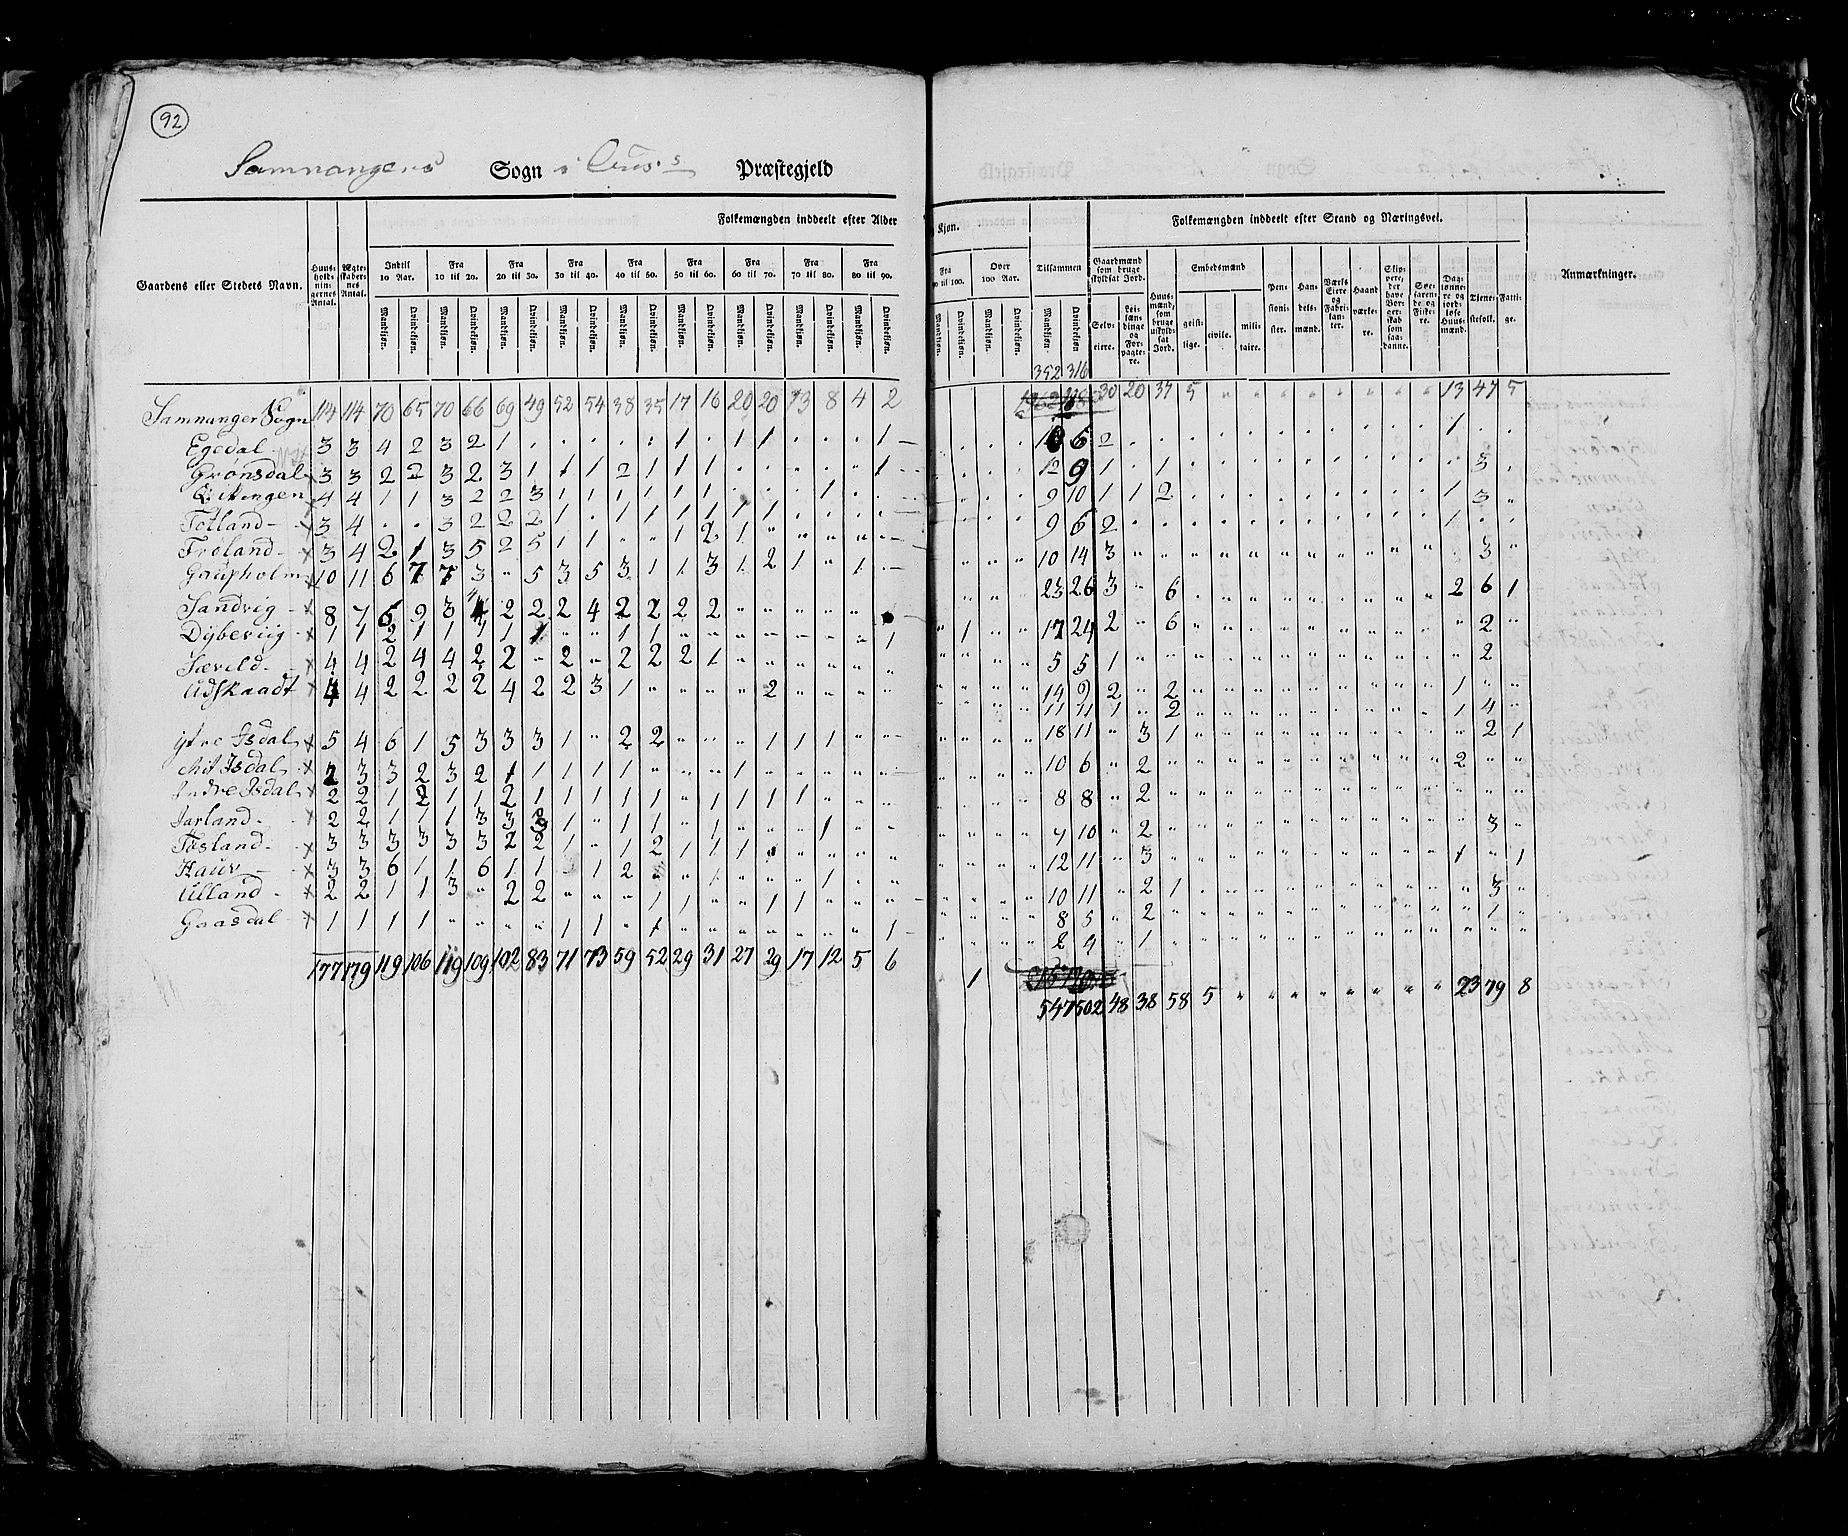 92
Samnangens Sogn i Ous's Præstegjeld
Folkemængden inddeelt efter Alder og Kjøn.
Folkemængden inddeelt efter Stand og Næringsvei.
Gaardens eller Stedets Navn.
Huus-holdnin-gernes Antal.
Ægte-skaber-nes Antal.
Indtil 10 Aar.
Fra 10 til 20.
Fra 20 til 30.
Fra 30 til 40.
Fra 40 til 50.
Fra 50 til 60.
Fra 60 til 70.
Fra 70 til 80.
Fra 80 til 90.
Fra 90 til 100.
Over 100 Aar.
Tilsammen
Gaardmænd som bruge skyldsat Jord.
Embedsmænd
Anmærkninger.
Mandkjøn. Qvindekjøn.
Selv-eiere.
Lei-lændinge og For-pagte-re.
Huus-mænd, som bruge uskyld-sat Jord.
geist-lige.
civile.
mili-taire.
Pen-sioni-ster.
Han-dels-mænd.
Værks Eiere og Fabri-kan-ter.
Haand værke-re.
Skip-pere, der have Bor-ger-skab som saa-danne.
Søe-faren-de og Fiske-re.
Dag-lønne-re og jord-løse Huus-mænd.
Tjene-stefolk.
Fatti-ge.
352 316
Samnanger Sogn 114 114 70 65 70 66 69 49 52 54 38 35 17 16 20 20 13 8 4 2 30 20 37 5 13 47 5
Egedal 3 3 4 2 3 2 1 . . . . . 1 . 1 1 . . . 1 10 6 2 1
Grønsdal 3 3 2 2 3 2 3 1 1 1 2 1 1 1 . . . . . 1 12 9 1 . 1 3
4 4 1 1 3 2 2 3 1 1 1 1 1 1 . . . 1 9 10 1 1 2 1 3
Totland 3 4 . . 3 2 2 2 1 . 1 1 1 1 1 1 9 6 2 1
Frøland 3 4 2 1 3 5 2 5 1 1 " " 1 2 1 " 10 14 3 3
Gaupholm 10 11 6 7 7 3 " 5 3 5 3 1 1 3 1 2 1 " 1 23 26 3 " 6 2 6 1
Sandvig 8 7 6 9 3 4 2 2 2 4 2 2 2 2 1 17 24 2 " 6 2
1 1 2 1 1 1 1 1 " " 1 1 1 5 5 1 2
4 4 2 4 4 2 2 " 2 " 2 2 2 1 14 9 2 " 2 1
Udskaadt 4 4 2 2 2 2 4 2 2 3 1 " " " " 2 11 11 1 " 2 1 4
Ytre Isdal 5 4 6 1 5 3 3 3 1 " 2 2 " " " 1 1 1 18 11 " 3 1 2 1
Mit Isdal 2 3 3 2 3 2 1 1 1 1 1 " " " 1 10 6 " 2 2
Indre Isdal 2 2 1 2 1 1 2 1 1 1 1 1 " 1 1 1 1 8 8 " 2
2 2 1 1 1 3 3 3 1 " 1 1 " 1 " " " 1 7 10 " 2 3
3 3 3 3 3 3 2 2 1 " 1 2 1 1 1 12 11 " 3 1 " 1
3 3 6 1 1 6 1 1 " 1 2 " " 1 " " " 1 10 11 " 2 1 3
Ulland 2 2 1 1 3 " 2 2 " " " 1 1 " 1 1 1 8 5 " 2 1
Gaasdal 1 1 1 1 " " " " 1 1 " 1 1 2 4 " 1
177 179 119 106 119 109 102 83 71 73 59 52 29 31 27 29 17 12 5 6 1
547 502 48 38 58 5 23 79 8